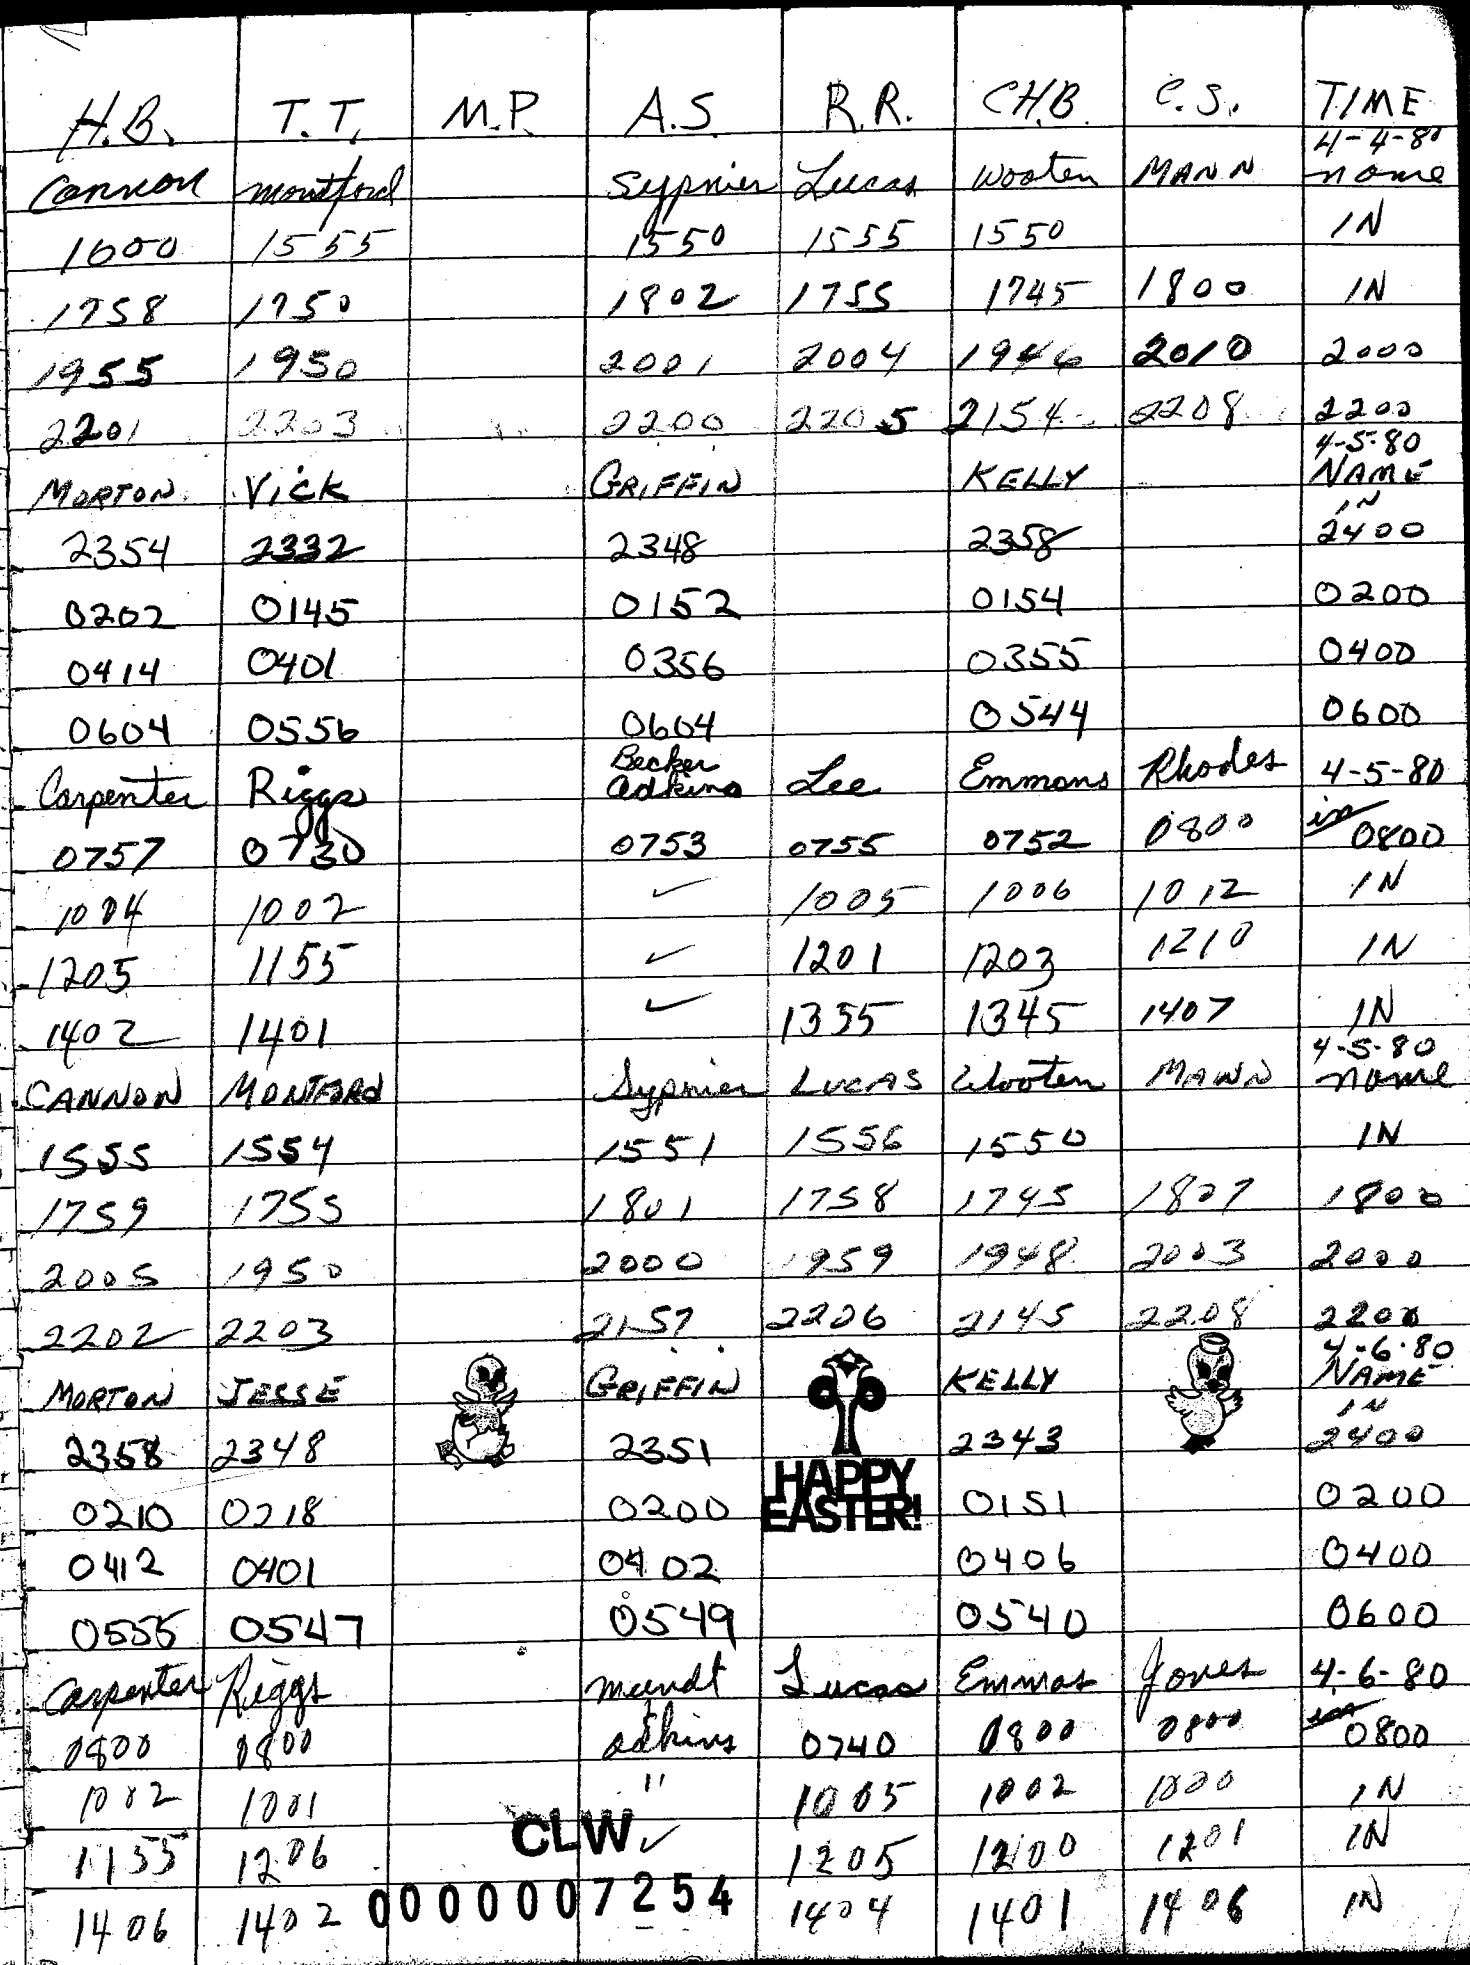 H.B. T.T. M.P. A.S. R.R. CH.B. C.S. TIME
4-4-80
Cannon Montford Sypnier Lucas Wooten MANN name
1600 1555 1550 1555 1550 IN
1758 1750 1802 1755 1745 1800 IN
1955 1950 2001 2004 1946 2010 2000
2201 2203 2200 2205 2154 2208 2200
4-5-80
MORTON VICK GRIFFIN KELLY NAME
IN
2354 2332 2348 2358 2400
0202 0145 0152 0154 0200
0414 0401 0356 0355 0400
0604 0556 0604 0544 0600
Becker
Carpenter Riggs Adkins Lee Emmons Rhodes 4-5-80
0757 0730 0753 0755 0752 0800 in 0800
1004 1002 ✓ 1005 1006 1012 IN
1205 1155 ✓ 1201 1203 1210 IN
1402 1401 ✓ 1355 1345 1407 IN
4-5-80
CANNON MONTFORD Sypnier LUCAS Wooten MANN name
1555 1554 1551 1556 1550 IN
1759 1755 1801 1758 1745 1807 1800
2005 1950 2000 1959 1948 2003 2000
2202 2203 2157 2206 2145 2208 2200
4-6-80
MORTON JESSE GRIFFIN KELLY NAME
IN
2358 2348 2351 2343 2400
HAPPY
EASTER!
0210 0218 0200 0151 0200
0412 0401 0402 0406 0400
0555 0547 0549 0540 0600
Carpenter Riggs Mundt Lucas Emmas Jones 4-6-80
0800 0800 adkins 0740 0800 0800 in 0800
1002 1001 " 1005 1002 1000 IN
1155 1206 ✓ 1205 1200 1201 IN
1406 1402 1404 1401 1406 IN
CLW
0000007254